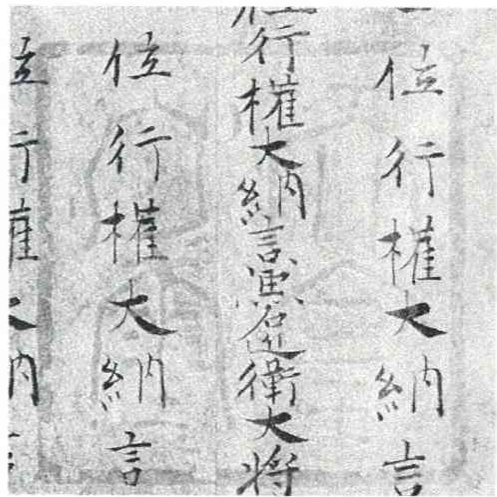 位行權大納言
位行權大納言兼右近衛大将
位行權大納言
位行權大納言